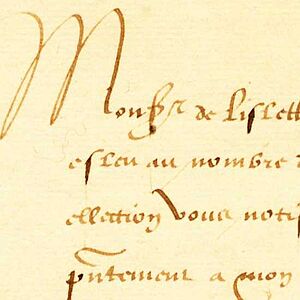 Monsr de Lislett
esleu au nombre d
ellection vous notif
pntement a mon